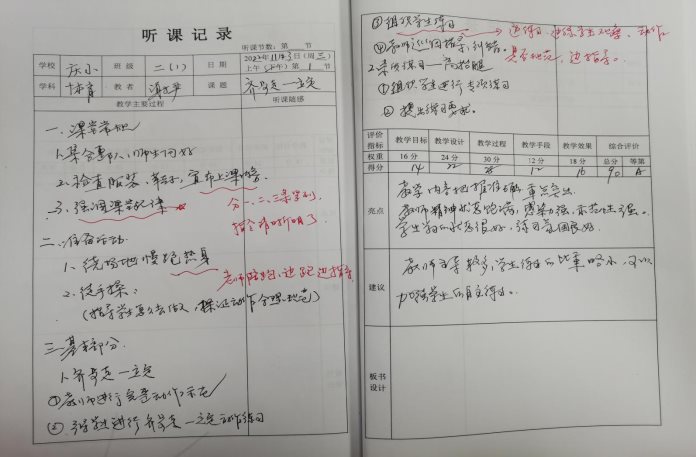 听课记录
听课节数：第 节
学校 庆小 班级 二（1） 日期 11月3日（周三）
上午（下午）第1节
学科 体育 教者 课题 齐步走—立定
教学主要过程 听课随感
一、课堂常规
1、集合整队、师生问好
2、检查服装、宣布上课内容
3、强调课堂纪律
分一、二、三条学列，
指令清晰明了
二、准备活动
1、绕场地慢跑热身
老师陪跑，边跑边指导
2、徒手操：
（指导学生怎么去做，保证动作合理规范）
三、基本部分
1、齐步走—立定
①教师进行完整动作示范
②学生进行齐步走—立定动作练习
③组织学生练习
边练习，学生观察，动作
是否规范，边指导。
④教师巡回指导、纠错。
2、素质练习—高抬腿
①组织学生进行专项练习
②提出练习要求。
评价指标 教学目标 教学设计 教学过程 教学手段 教学效果 综合评价
权重 16分 24分 30分 12分 18分 总分 等第
得分 14 22 28 16 90 A
亮点
教学内容把握准确，重点突出
教师精神状态饱满，感染力强，示范性强。
学生学习状态很好，练习氛围良好。
建议
教师主导较多，学生练习的比重略小，可以
加强学生的自主练习。
板书设计